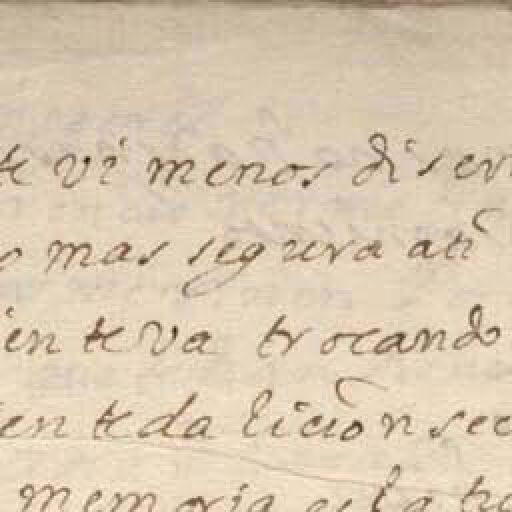 te vi menos diser
mas segura ati
iente va trocando
iente da licion sec
memoria